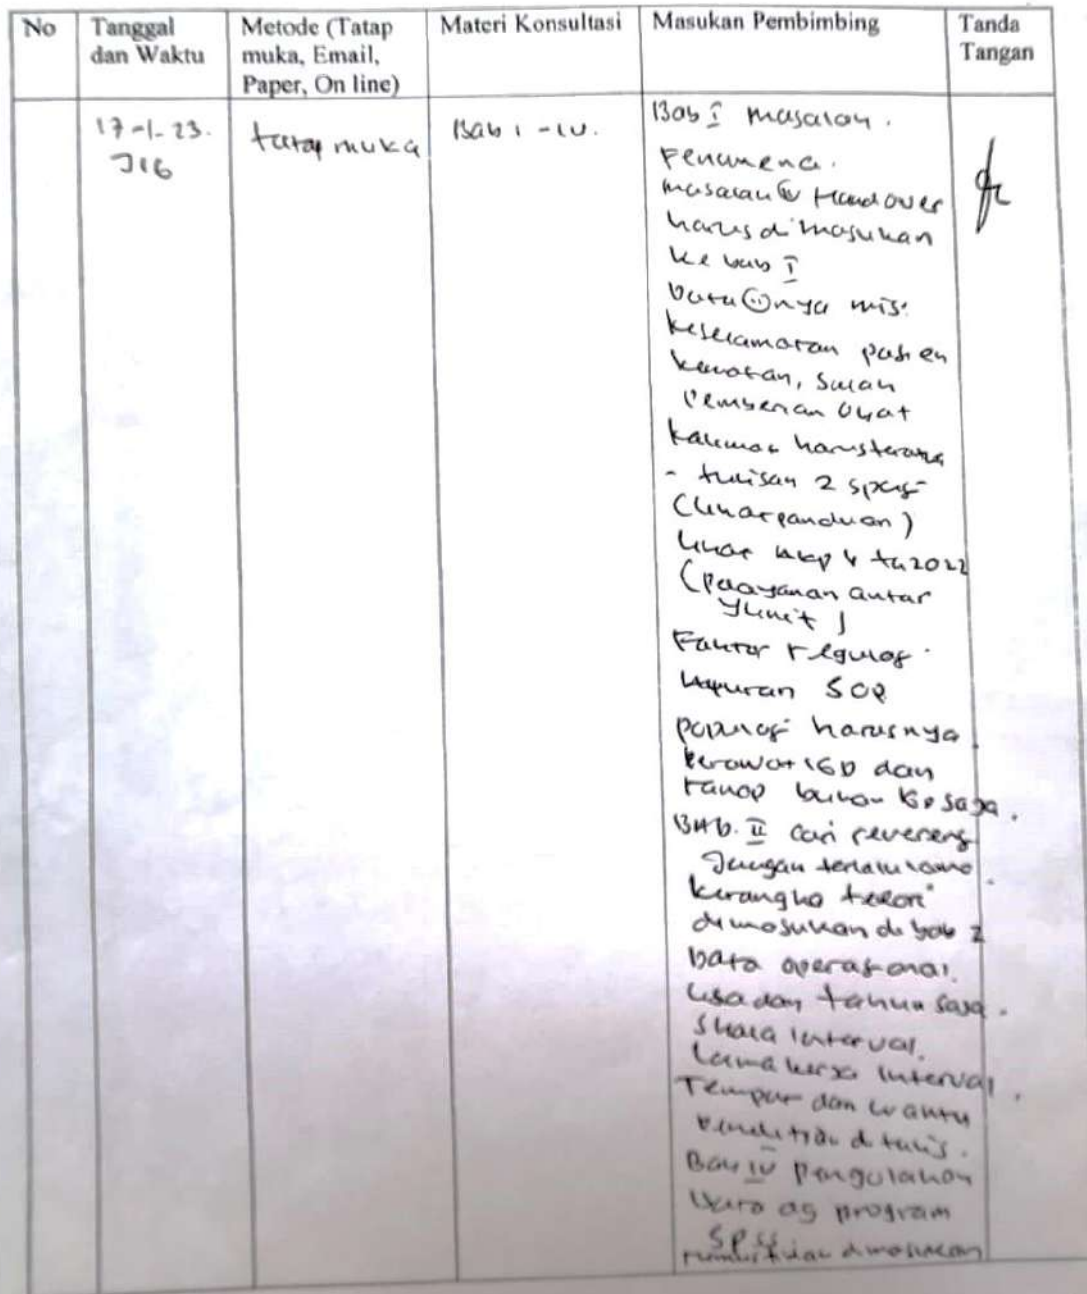 No
Tanggal
dan Waktu
Metode (Tatap
muka, Email,
Paper, On line)
Materi Konsultasi
Masukan Pembimbing
Tanda
Tangan
17-1-23.
tatap muka
Bab 1 - IV.
Bab I masalah.
Fenomena.
masalah Handover
harus dimasukan
ke bab I
nya mis:
keselamatan pasien
kematian, salah
Pemberian Obat
kalimat harus
- tulisan 2 spasi
(lihat panduan)
lihat 4 th 2022
(pelayanan antar
unit)
Faktor
SOP
populasi harusnya
perawat IGD dan
ranap bukan IGD saja.
BAB. II cari
Jangan terlalu lama.
kerangka teori
dimasukan di bab 2
operasional.
Usia dan tahun saja.
Skala interval.
Lama kerja interval.
Tempat dan waktu
penelitian ditulis.
Bab IV pengolahan
data dg program
SPSS
dimasukan